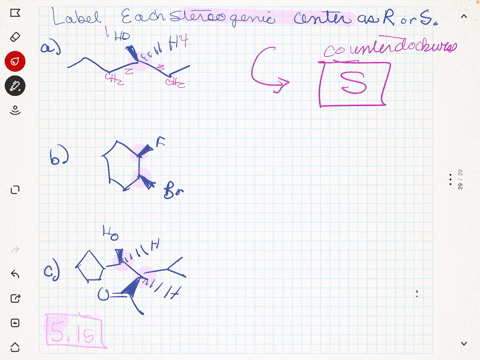 Label Each stereogenic center as R or S.
a) 1 HO H4 counterclockwise
2 3 S
CH2 CH2
b) F
Br
c) HO H
O H
5.15
29 / 29